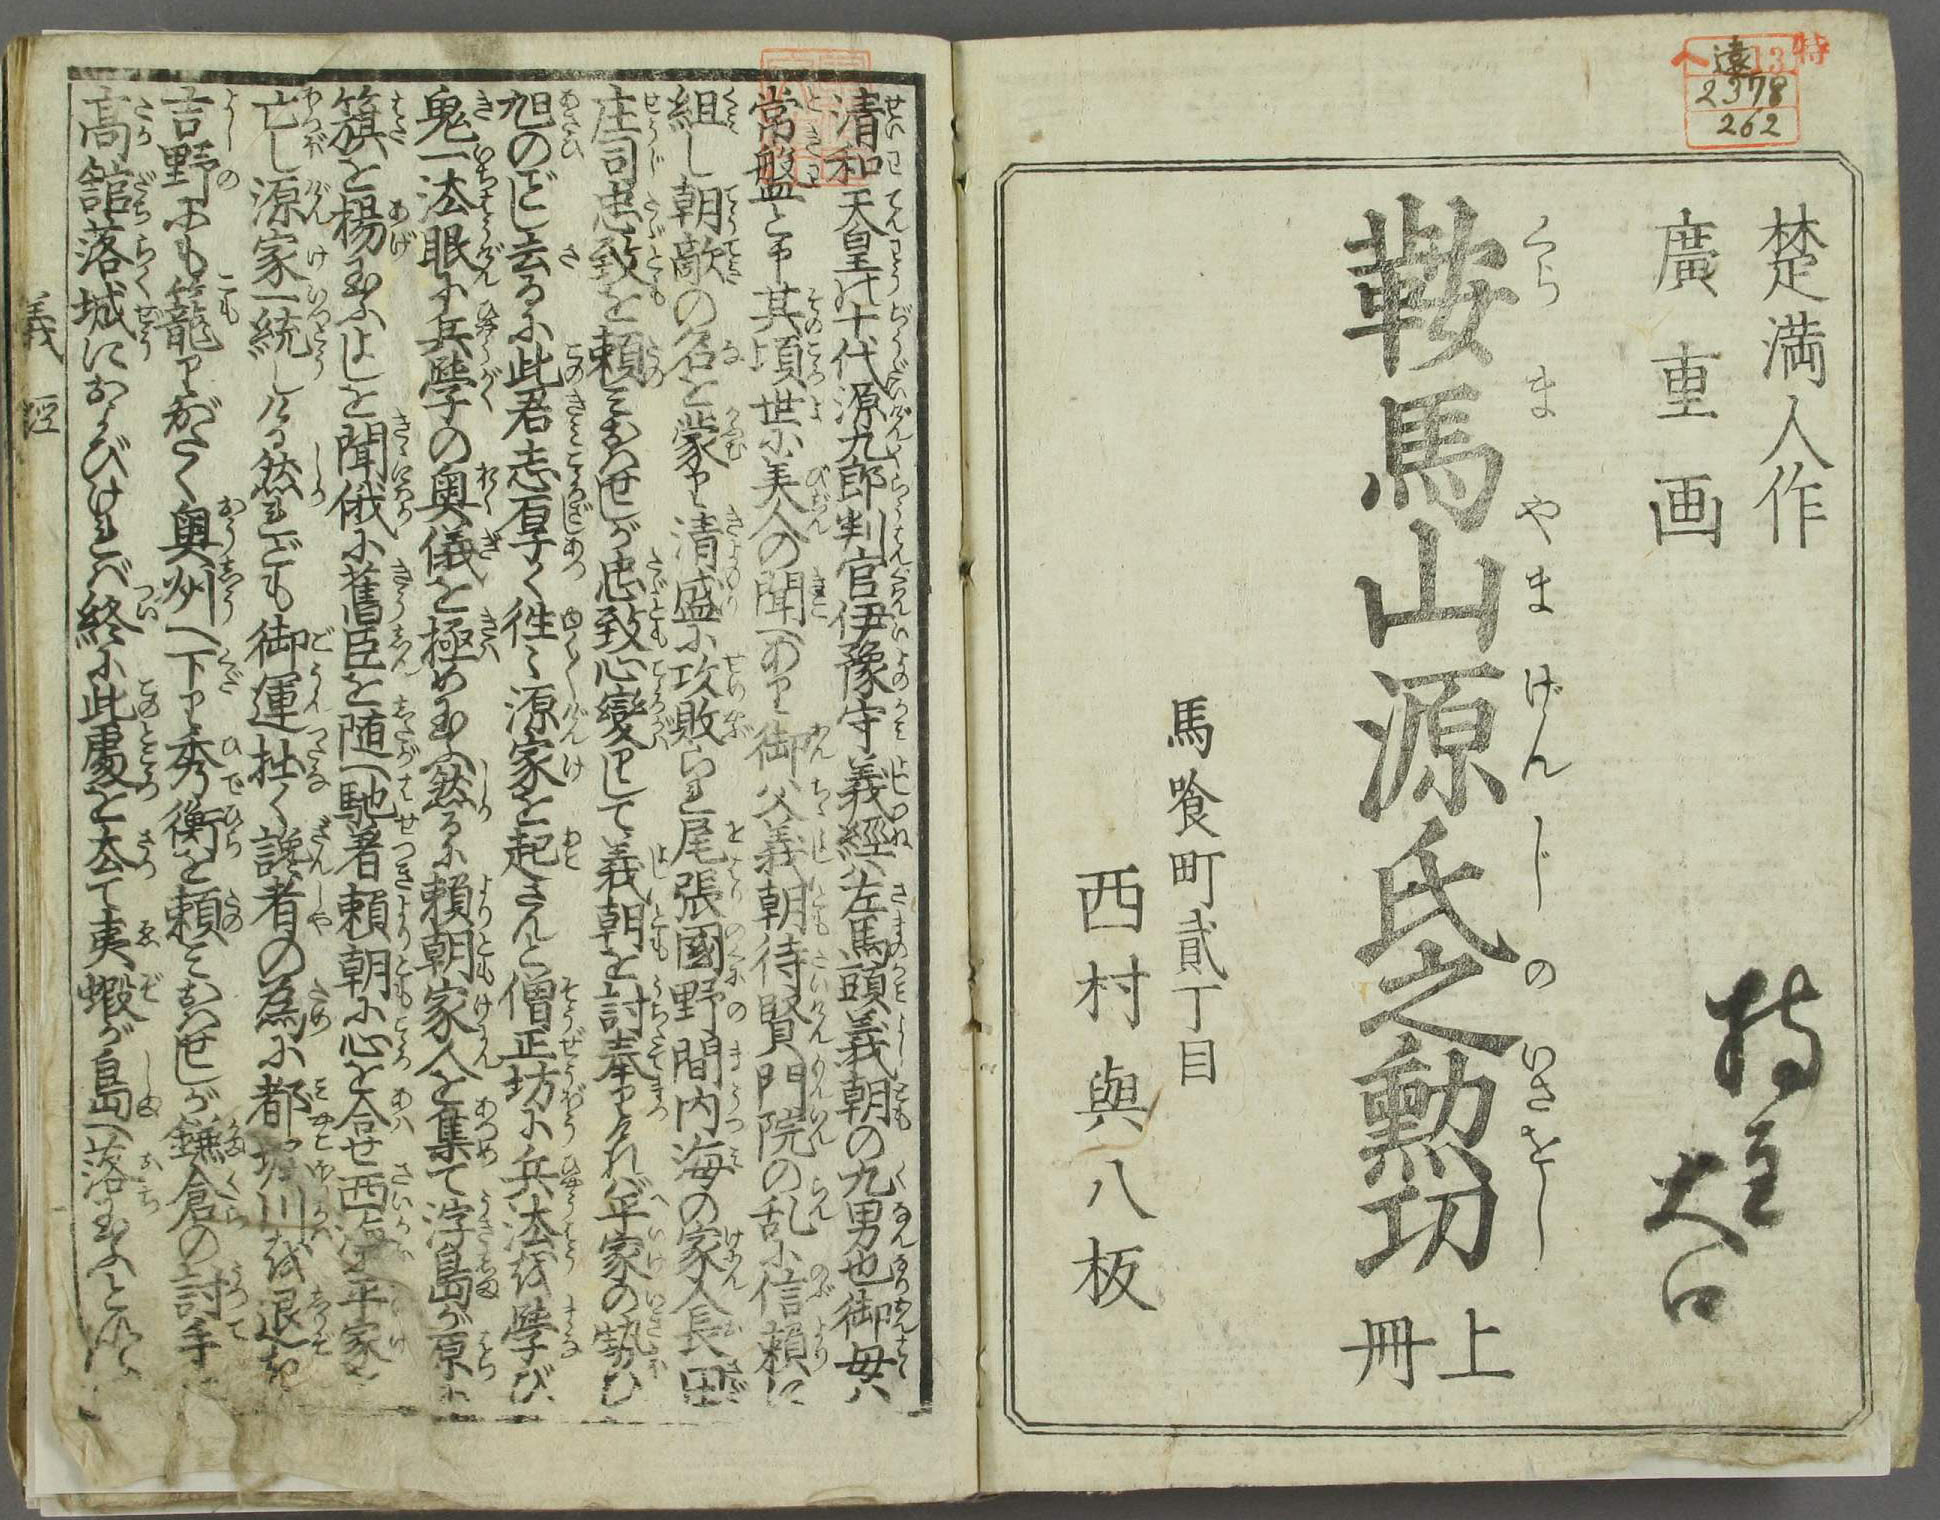 特
へ 遠 13
2378
262
楚満人作
廣重画
鞍馬山源氏之勲功 上冊
くらまやまげんじのいさをし
馬喰町貳丁目
西村與八板
持主
大口
清和天皇十代源九郎判官伊豫守義經ハ左馬頭義朝の九男也御母ハ
常盤と申其頃世に美人の聞へあり御父義朝待賢門院の乱に信頼に
組し朝敵の名を蒙り清盛に攻敗られ尾張國野間内海の家人長田
庄司忠致を頼みおはせしが忠致心變りして義朝を討奉りけれバ平家の勢ひ
旭のごとし去るに此君志厚く往々源家を起さんと僧正坊に兵法を學び
鬼一法眼に兵學の奥儀を極め玉ふ然るに頼朝家人を集て浮島が原に
籏を揚玉ふよしを聞俄に舊臣を随へ馳着頼朝に心を合せ西海に平家を
亡し源家一統しける然れども御運拙く讒者の為に都堀川を退き
吉野にも籠りがたく奥州へ下り秀衡を頼みおはせしが鎌倉の討手
高舘落城におよびけれバ終に此處を去て夷蝦が島へ落玉ふと
義經